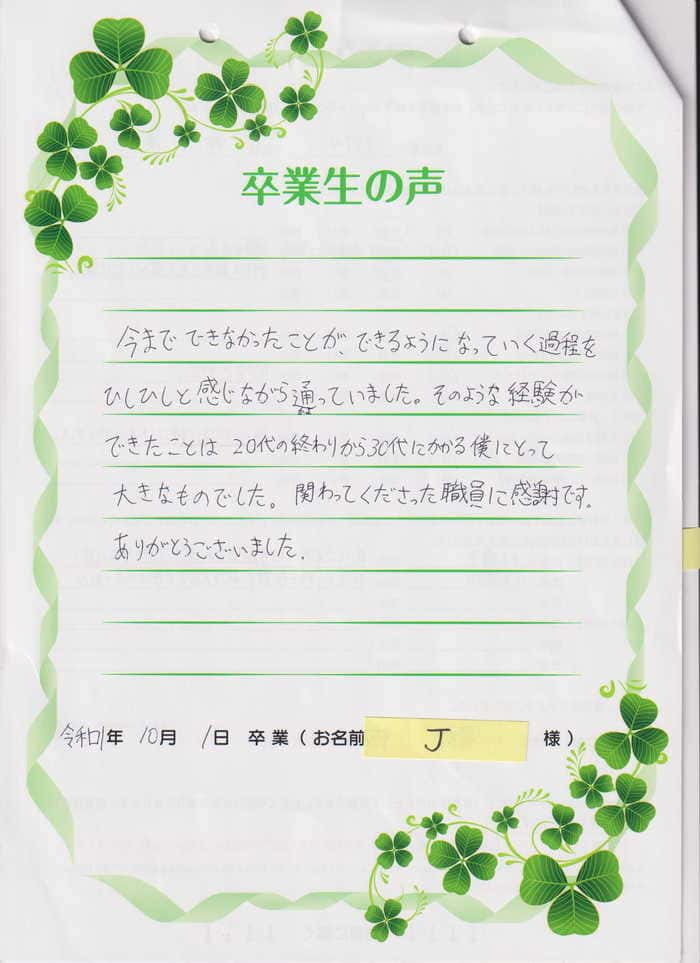 卒業生の声
今まで できなかったことが、できるように なっていく過程を
ひしひしと感じながら通っていました。そのような経験が
できたことは 20代の終わりから30代にかかる僕にとって
大きなものでした。関わってくださった職員に感謝です。
ありがとうございました.
令和1年 10月 1日 卒業(お名前 J 様)